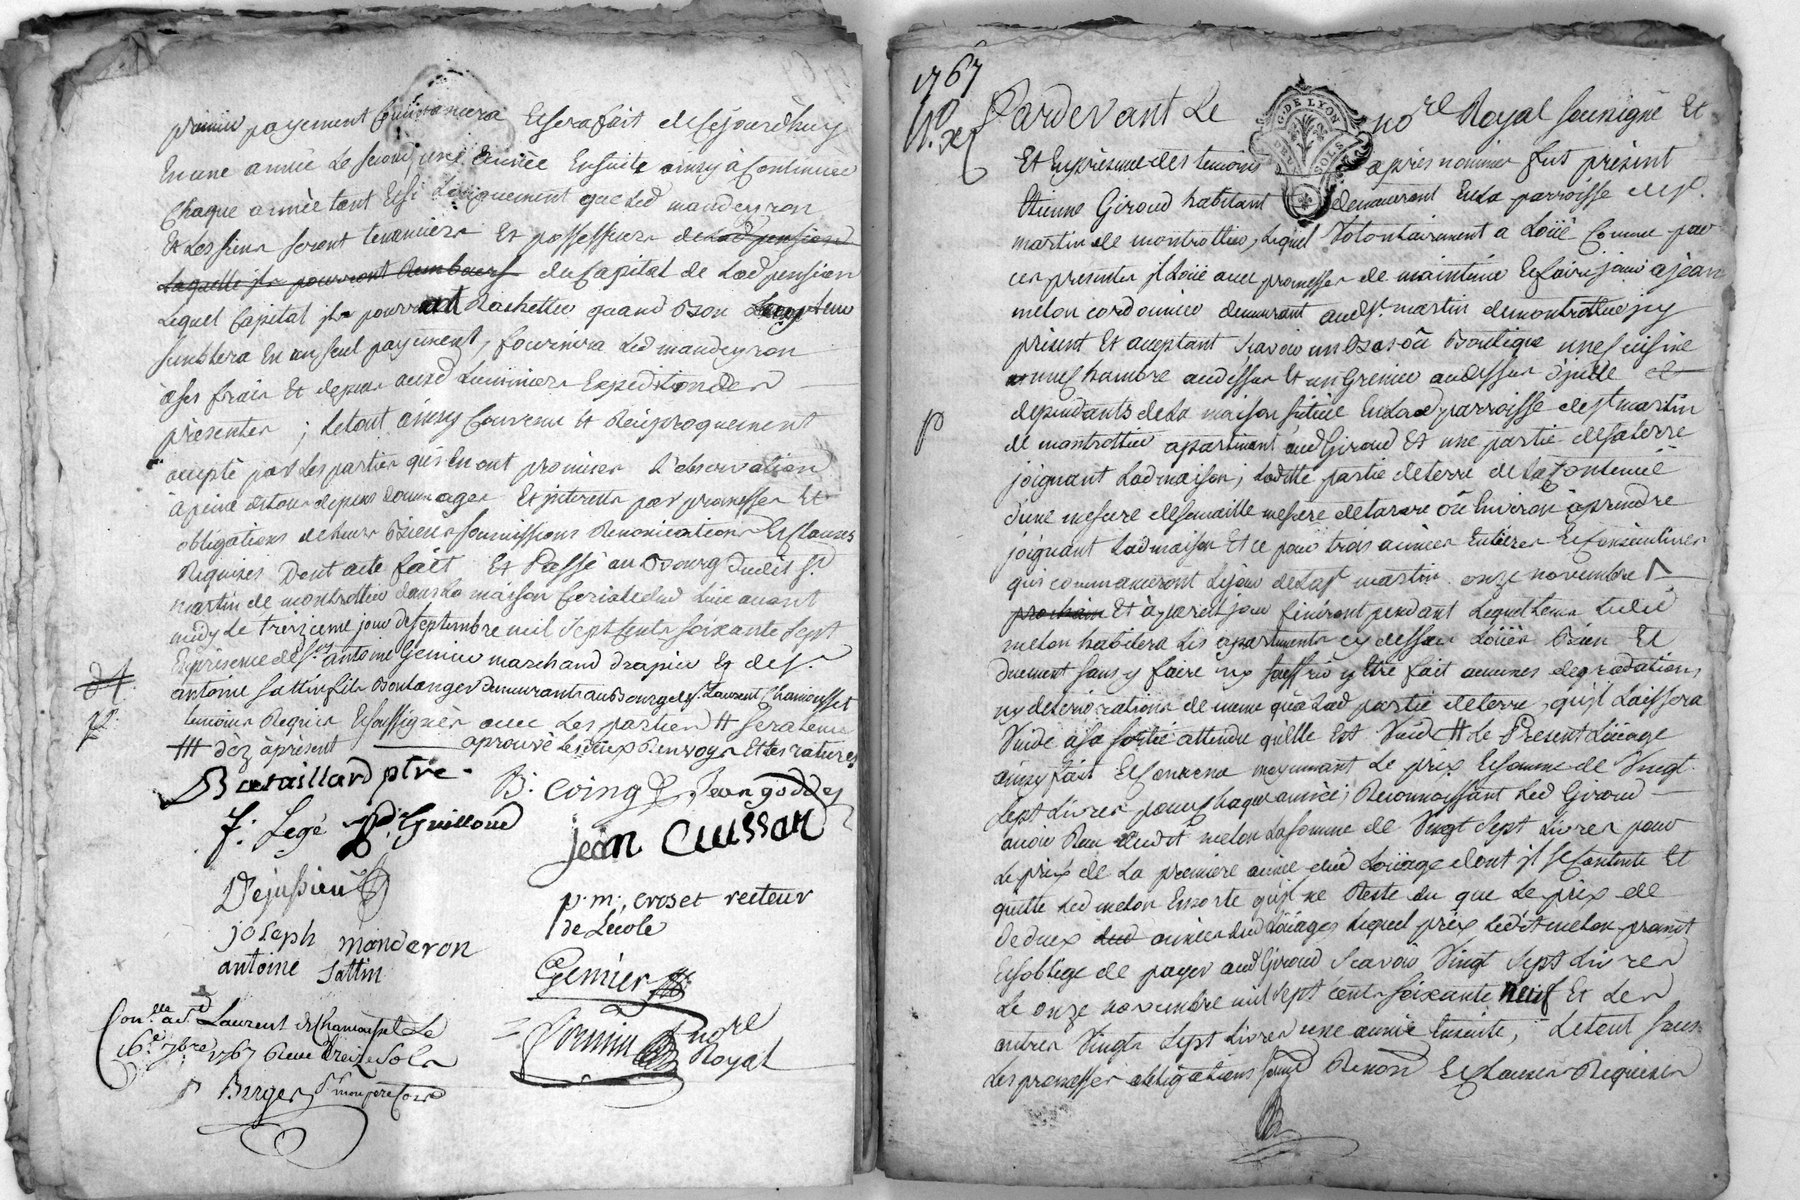 premier payement Commancera Et sera fait de Cejourd'huy
En une année Le second une année Ensuite ainsy à Continuer
Chaque année tant Et si Longuement que Led mandeyron
Et Les siens seront tenanciers Et possesseurs de Lad pension
Laquelle ils pourront du Capital de Lad pension
Lequel Capital ils pourront Rachetter quand Bon Leur
semblera En un seul payement, fournira Led mandeyron
à ses frais Et depens aused Luminiers Expedition des
presentes ; Le tout ainsy Convenu Et Reciproquement
accepté par Les parties qui En ont promises L'observation
à peine de tous depens dommages Et interests par promesses Et
obligations de Leurs Biens soumissions Renonciations Et Clauses
Requises Dont acte fait Et Passé au Bourg Dudit St
martin de montrottier dans La maison Curiale dud Lieu avant
midy Le treizieme jour de septembre mil sept cents soixante sept
En presence de Sr antoine Gemier marchand drapier Et de Sr
antoine sattin fils Boulanger demeurants au Bourg de St Laurent Chamousset
temoins Requis Et soussignés avec Les parties # seralement
## dèz àprésent aprouvé Les deux Renvoys Et Les ratures
Bataillard ptre. B: Coing Jean goddey
f: Legé P: Guilloud Jean Cuissard
Dejussieu p: m:, croset recteur
de Lecole
joseph manderon
antoine sattin Gemier
Con.lle a St Laurent de Chamousset Le
16e 7bre 1767 Receu treize sols
Berger pr mon pere
nore
Royal
1767
Pardevant Le nore Royal sousigné Et
G. DE LYON
SOLS
Et En presence des temoins apres nommés fut présent
Etienne Giroud habitant demeurant En La parroisse de St
martin de montrottier, Lequel Volontairement a Loüé Comme par
ces presentes il Loüe avec promesses de maintenir Et faire jouir a jean
melon cordonnier demeurant aud St martin de montrottier icy
présent Et acceptant scavoir un Bas où Boutique une Cuisine
une Chambre audessus Et un Grenier audessus d'icelle
dependants de La maison sitüée En Lad parroisse de St martin
de montrottier apartenant aud Giroud Et une partie de sa terre
joignant Lad maison, Laditte partie de terre de La Contenue
d'une mesure de semaille mesure de tarare où Environ à prendre
joignant Lad maison Et ce pour trois années Entieres Et Consécutives
qui commanceront Le jour de La St martin onze novembre
prochain Et à pareil jour finiront pendant Lequel tems Ledit
melon habitera Les apartements cy dessus Loüés Bien Et
Duement sans y faire ny souffrir y Etre fait aucunes degradations
ny deteriorations de meme qu'a Lad partie de terre, qu'il Laissera
Vuide à sa sortie attendu qu'elle Est Vuide # Le Présent Loüage
ainsy fait Et Convenu moyennant Le prix Et somme de Vingt
sept Livres pour Chaque année; Reconnoissant Led Giroud
avoir Reçu dudit melon La somme de Vingt sept Livres pour
Le prix de La premiere année dud Loüage dont il se Contente Et
quitte Led melon En sorte qu'il ne Reste du que Le prix de
de deux années dud Loüages Lequel prix Ledit melon promet
Et s'oblige de payer aud Giroud scavoir Vingt sept Livres
Le onze novembre mil sept cents soixante neuf Et Les
autres Vingt sept Livres une année Ensuite, Le tout sous
Les promesses obligations soumd Renond Et Clauses Requises